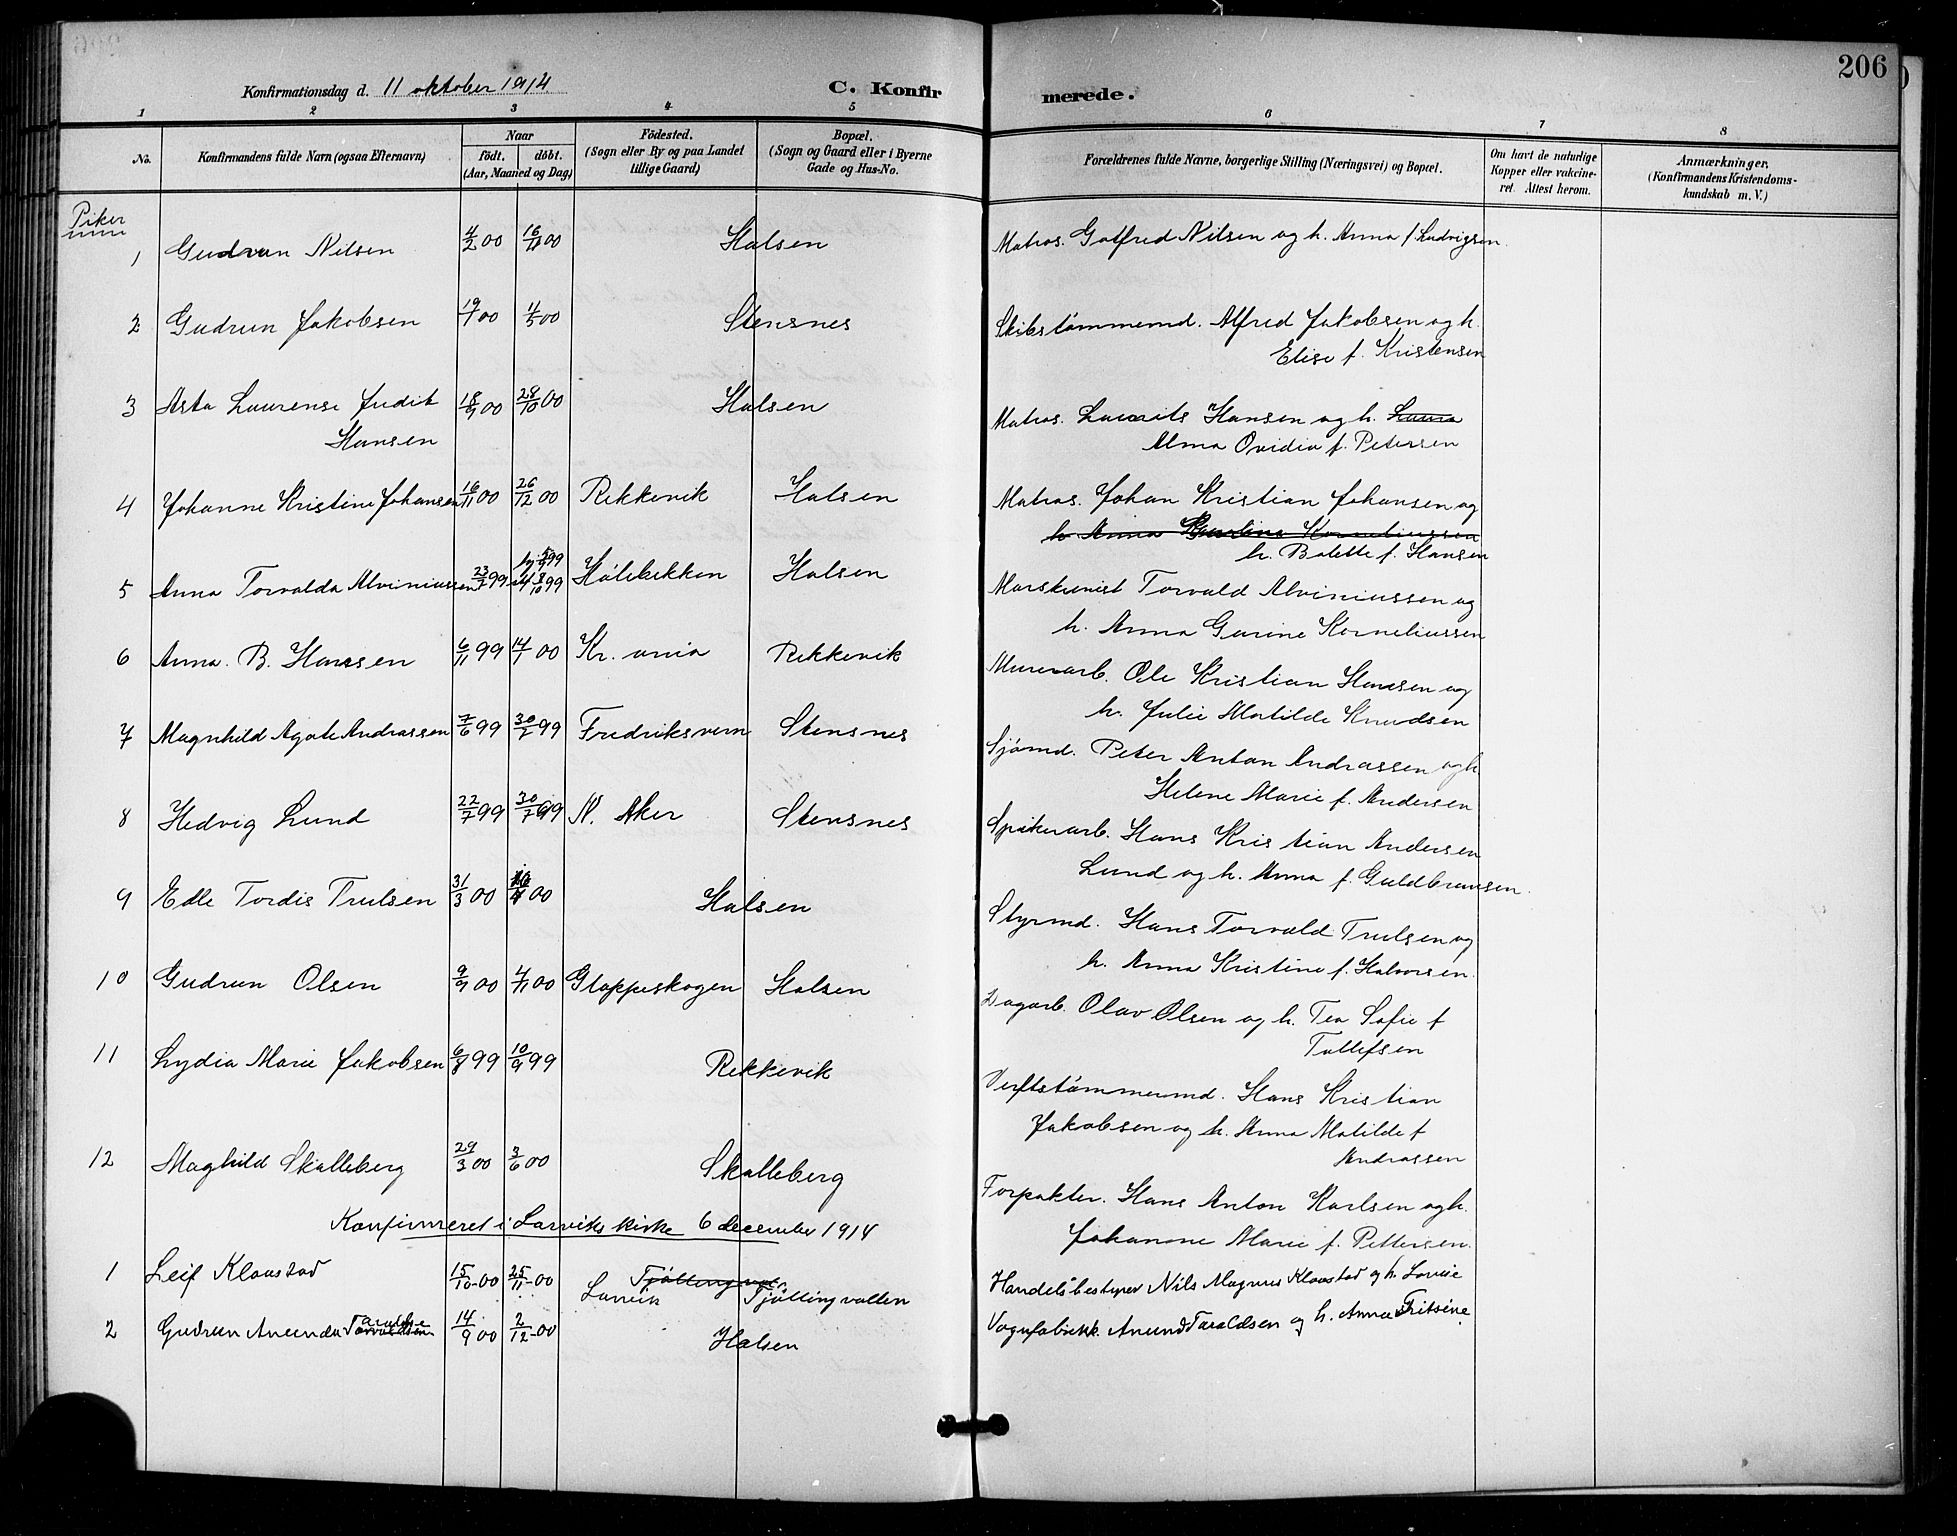 206
Konfirmationsdag d. 11 oktober 1914. C. Konfirmerede.
1 2 3 4 5 6 7 8
No. Konfirmandens fulde Navn (ogsaa Efternavn) Naar født. døbt. (Aar, Maaned og Dag) Fødested. (Sogn eller By og paa Landet tillige Gaard) Bopæl. (Sogn og Gaard eller i Byerne Gade og Hus-No. Forældrenes fulde Navne, borgerlige Stilling (Næringsvei) og Bopæl. Om havt de naturlige Kopper eller vakcineret. Attest herom. Anmærkninger. (Konfirmandens Kristendomskundskab m. V.)
Piker
1 Gudrun Nilsen 4/2 00 16/4 00 Halsen Matros. Gotfred Nilsen og h. Anna f. Ludvigsen
2 Gudrun Jakobsen 19/1 00 11/5 00 Stensnes Skibstømmermd. Alfred Jakobsen og h.
Elise f. Kristensen
3 Asta Laurense Judit 18/9 00 28/10 00 Halsen Matros. Laurits Hansen og h. Laura
Hansen Alma Ovidia f. Petersen
4 Johanne Kristine Johansen 16/11 00 26/12 00 Rekkevik Halsen Matros. Johan Kristian Johansen og
h. Anna Korneliussen
h. Bolette f. Hansen
5 Anna Torvalda Alviniussen 23/7 99 8/10 99 Hølebekken Halsen Maskinist Torvald Alviniussen og
h. Anna Gurine Korneliussen
6 Anna. B. Hansen 6/11 99 14/1 00 Kr. ania Rekkevik Murerarb. Ole Kristian Hansen og
h. Julie Matilde Knudsen
7 Magnhild Agate Andrassen 7/6 99 30/7 99 Fredriksvern Stensnes Sjømd. Peter Anton Andrassen og h.
Helene Marie f. Andersen
8 Hedvig Lund 22/7 99 30/7 99 N. Aker Stensnes Spikerarb. Hans Kristian Andersen
Lund og h. Anna f. Guldbransen.
9 Edle Tordis Trulsen 31/3 00 00 Halsen Styrmd. Hans Torvald Trulsen og
h. Anna Kristine f. Halvorsen.
10 Gudrun Olsen 9/9 00 4/11 00 Gloppeskogen Halsen Dagarb. Olav Olsen og h. Tea Sofie f
Tollefsen
11 Lydia Marie Jakobsen 6/8 99 10/9 99 Rekkevik Verftstømmermd. Hans Kristian
Jakobsen og h. Anna Matilde f
Andrassen
12 Maghild Skalleberg 29/3 00 3/6 00 Skalleberg Forpakter. Hans Anton Karlsen og h.
Johanne Marie f. Pettersen.
Konfirmeret i Larviks kirke 6 december 1914
1 Leif Klaastad 15/10-00 25/11-00 Larvik Tjøllingvollen Handelsbestyrer Nils Magnus Klaastad og h. Lovise
2 Gudrun Anunda Taraldsen 14/9 00 2/12-00 Halsen Vognfabrikk. Anund Taraldsen og h. Anna Fritsine